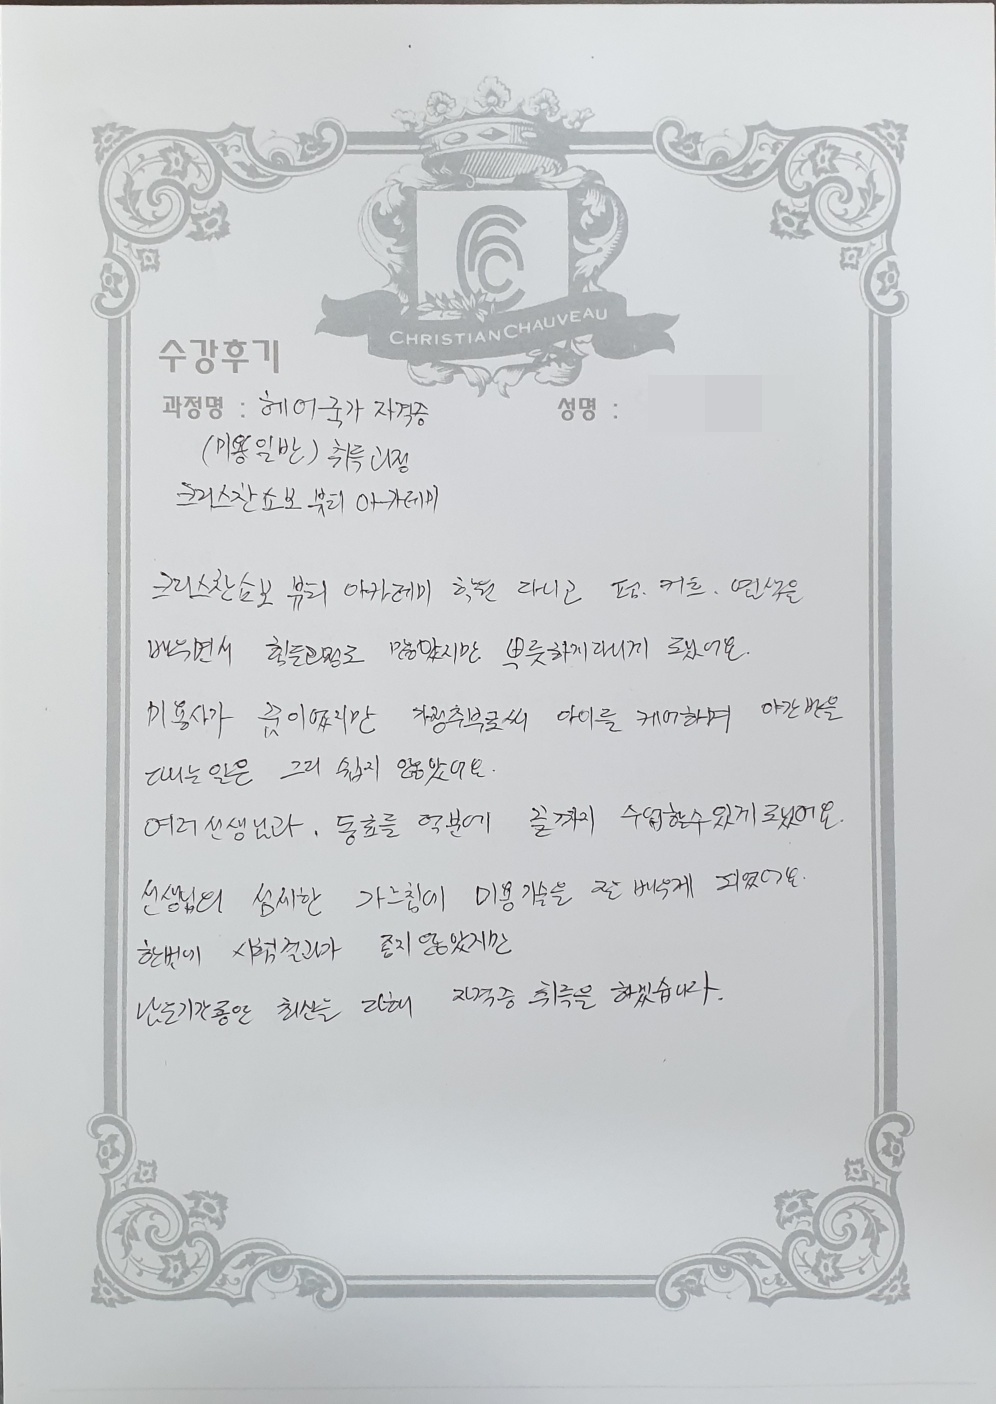 CHRISTIAN CHAUVEAU
수강후기
과정명 : 헤어국가 자격증
성명 :
(미용일반) 취득과정
크리스찬쇼보 뷰티 아카데미
크리스찬쇼보 뷰티 아카데미 학원 다니고 펌. 커트. 염색을
배우면서 힘든점도 많았지만 뿌듯하게 다니게 됬어요.
미용사가 꿈이였지만 가정주부로써 아이를 케어하며 야간반을
다니는 일은 그리 쉽지 않았어요.
여러 선생님과, 동료들 덕분에 끝까지 수업할수 있게 됬어요.
선생님의 섬세한 가르침에 미용기술을 잘 배우게 되었어요.
한번에 시험결과가 좋지 않았지만
남은기간동안 최선을 다해 자격증 취득을 하겠습니다.